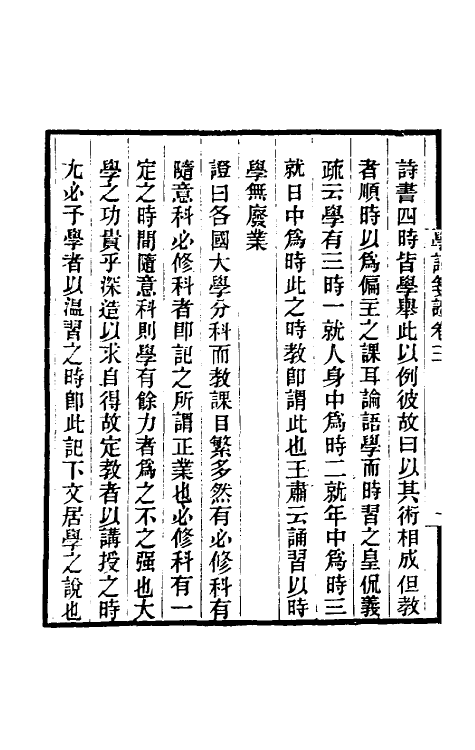 詩書四時皆學舉此以例彼故曰以其術相成但教
者順時以為偏主之課耳論語學而時習之皇侃義
疏云學有三時一就人身中為時二就年中為時三
就日中為時此之時教卽謂此也王肅云誦習以時
學無廢業
證曰各國大學分科而教課目繁多然有必修科有
隨意科必修科者卽記之所謂正業也必修科有一
定之時間隨意科則學有餘力者為之不之强也大
學之功貴乎深造以求自得故定教者以講授之時
尤必予學者以溫習之時卽此記下文居學之說也